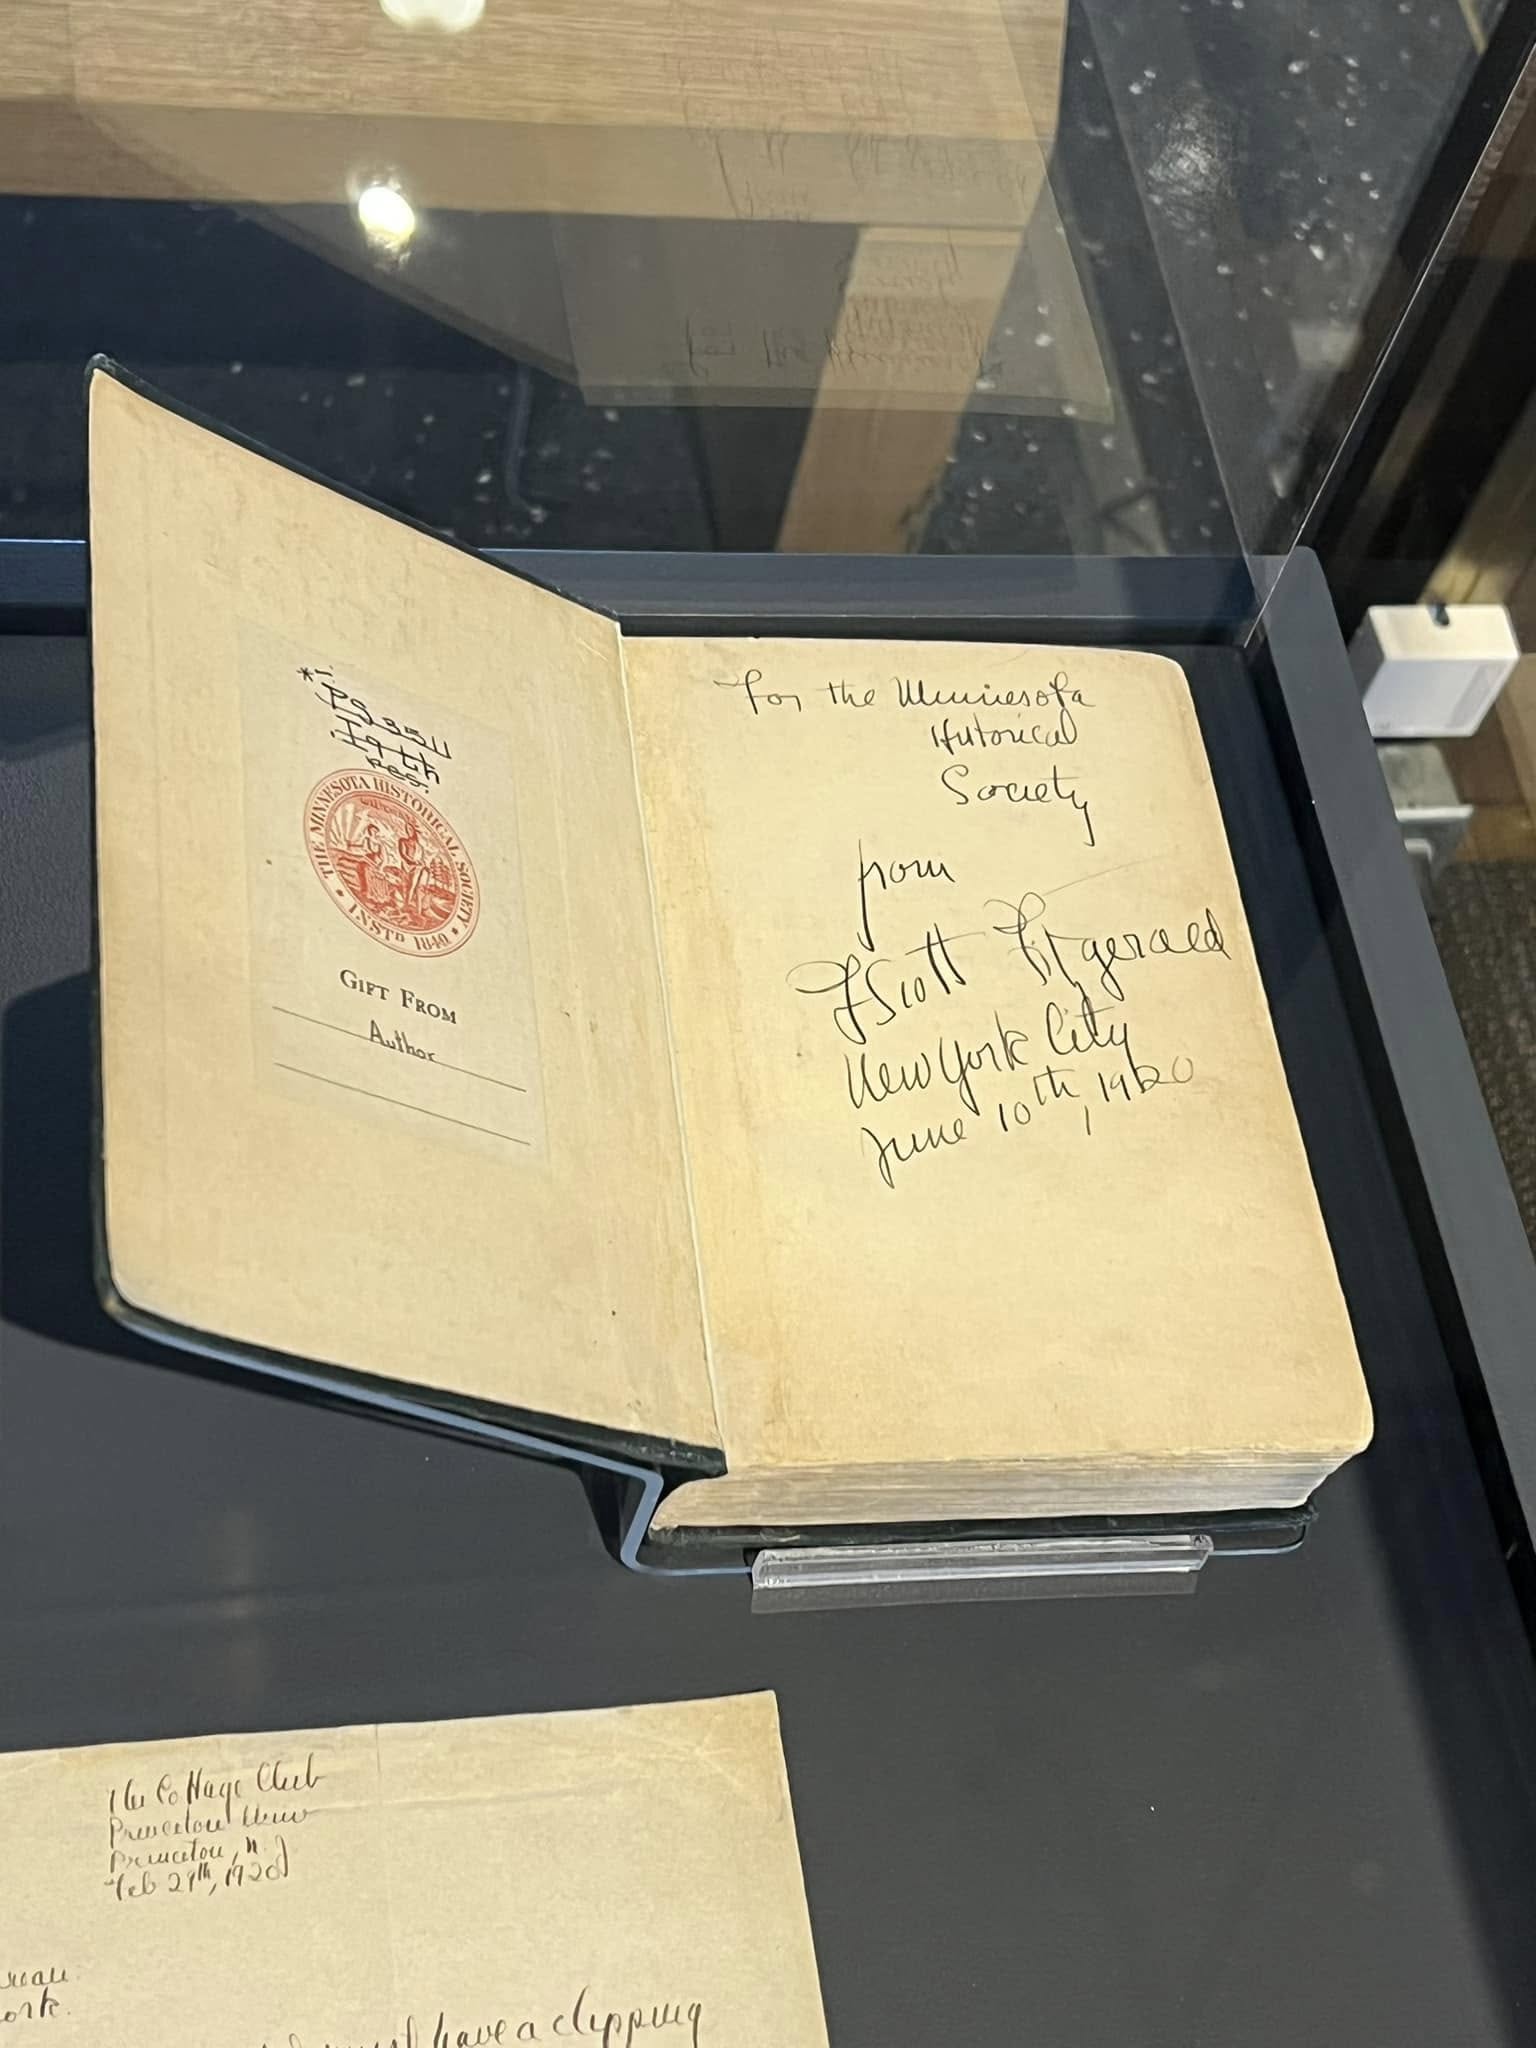 PS3511
.I9th
res.
THE MINNESOTA HISTORICAL SOCIETY
INSTD 1849
GIFT FROM
Author
For the Minnesota
Historical
Society
from
F Scott Fitzgerald
New York City
June 10th, 1920
The Cottage Club
Princeton Univ
Princeton, N.J
Feb 29th, 1920
ork.
have a clipping